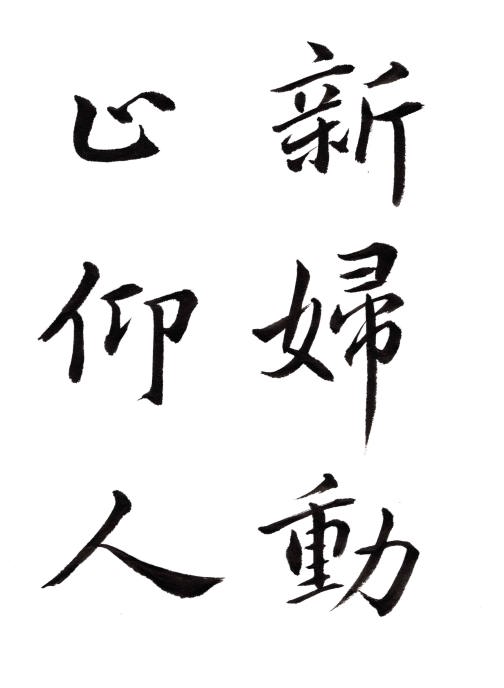 新婦動
心仰人